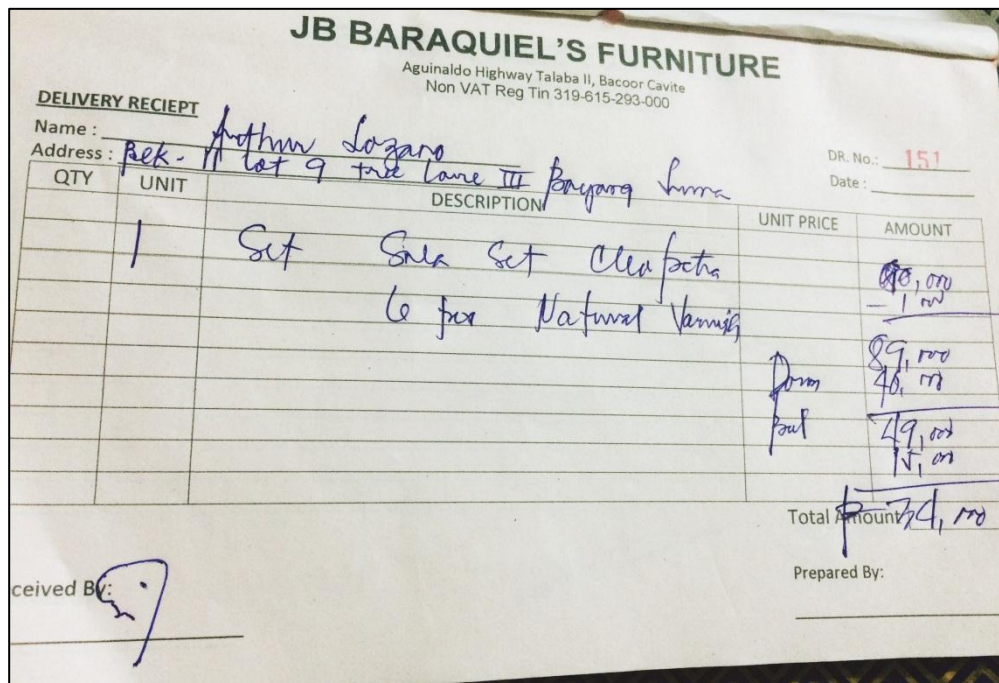 JB BARAQUIEL'S FURNITURE
Aguinaldo Highway Talaba II, Bacoor Cavite
Non VAT Reg Tin 319-615-293-000
DELIVERY RECIEPT
Name : Arthur Lozano
Address : Belk - 11 Lot 9 tree Lane III Bayang Luma
DR. No.: 151
Date :
QTY UNIT DESCRIPTION UNIT PRICE AMOUNT
1 Set Sala Set Cleopatra
6 pcs Natural Varnish
- 1,000
89,000
Down 40,000
Bal 49,000
15,000
Total Amount ₱ 34,000
ceived By:
Prepared By: